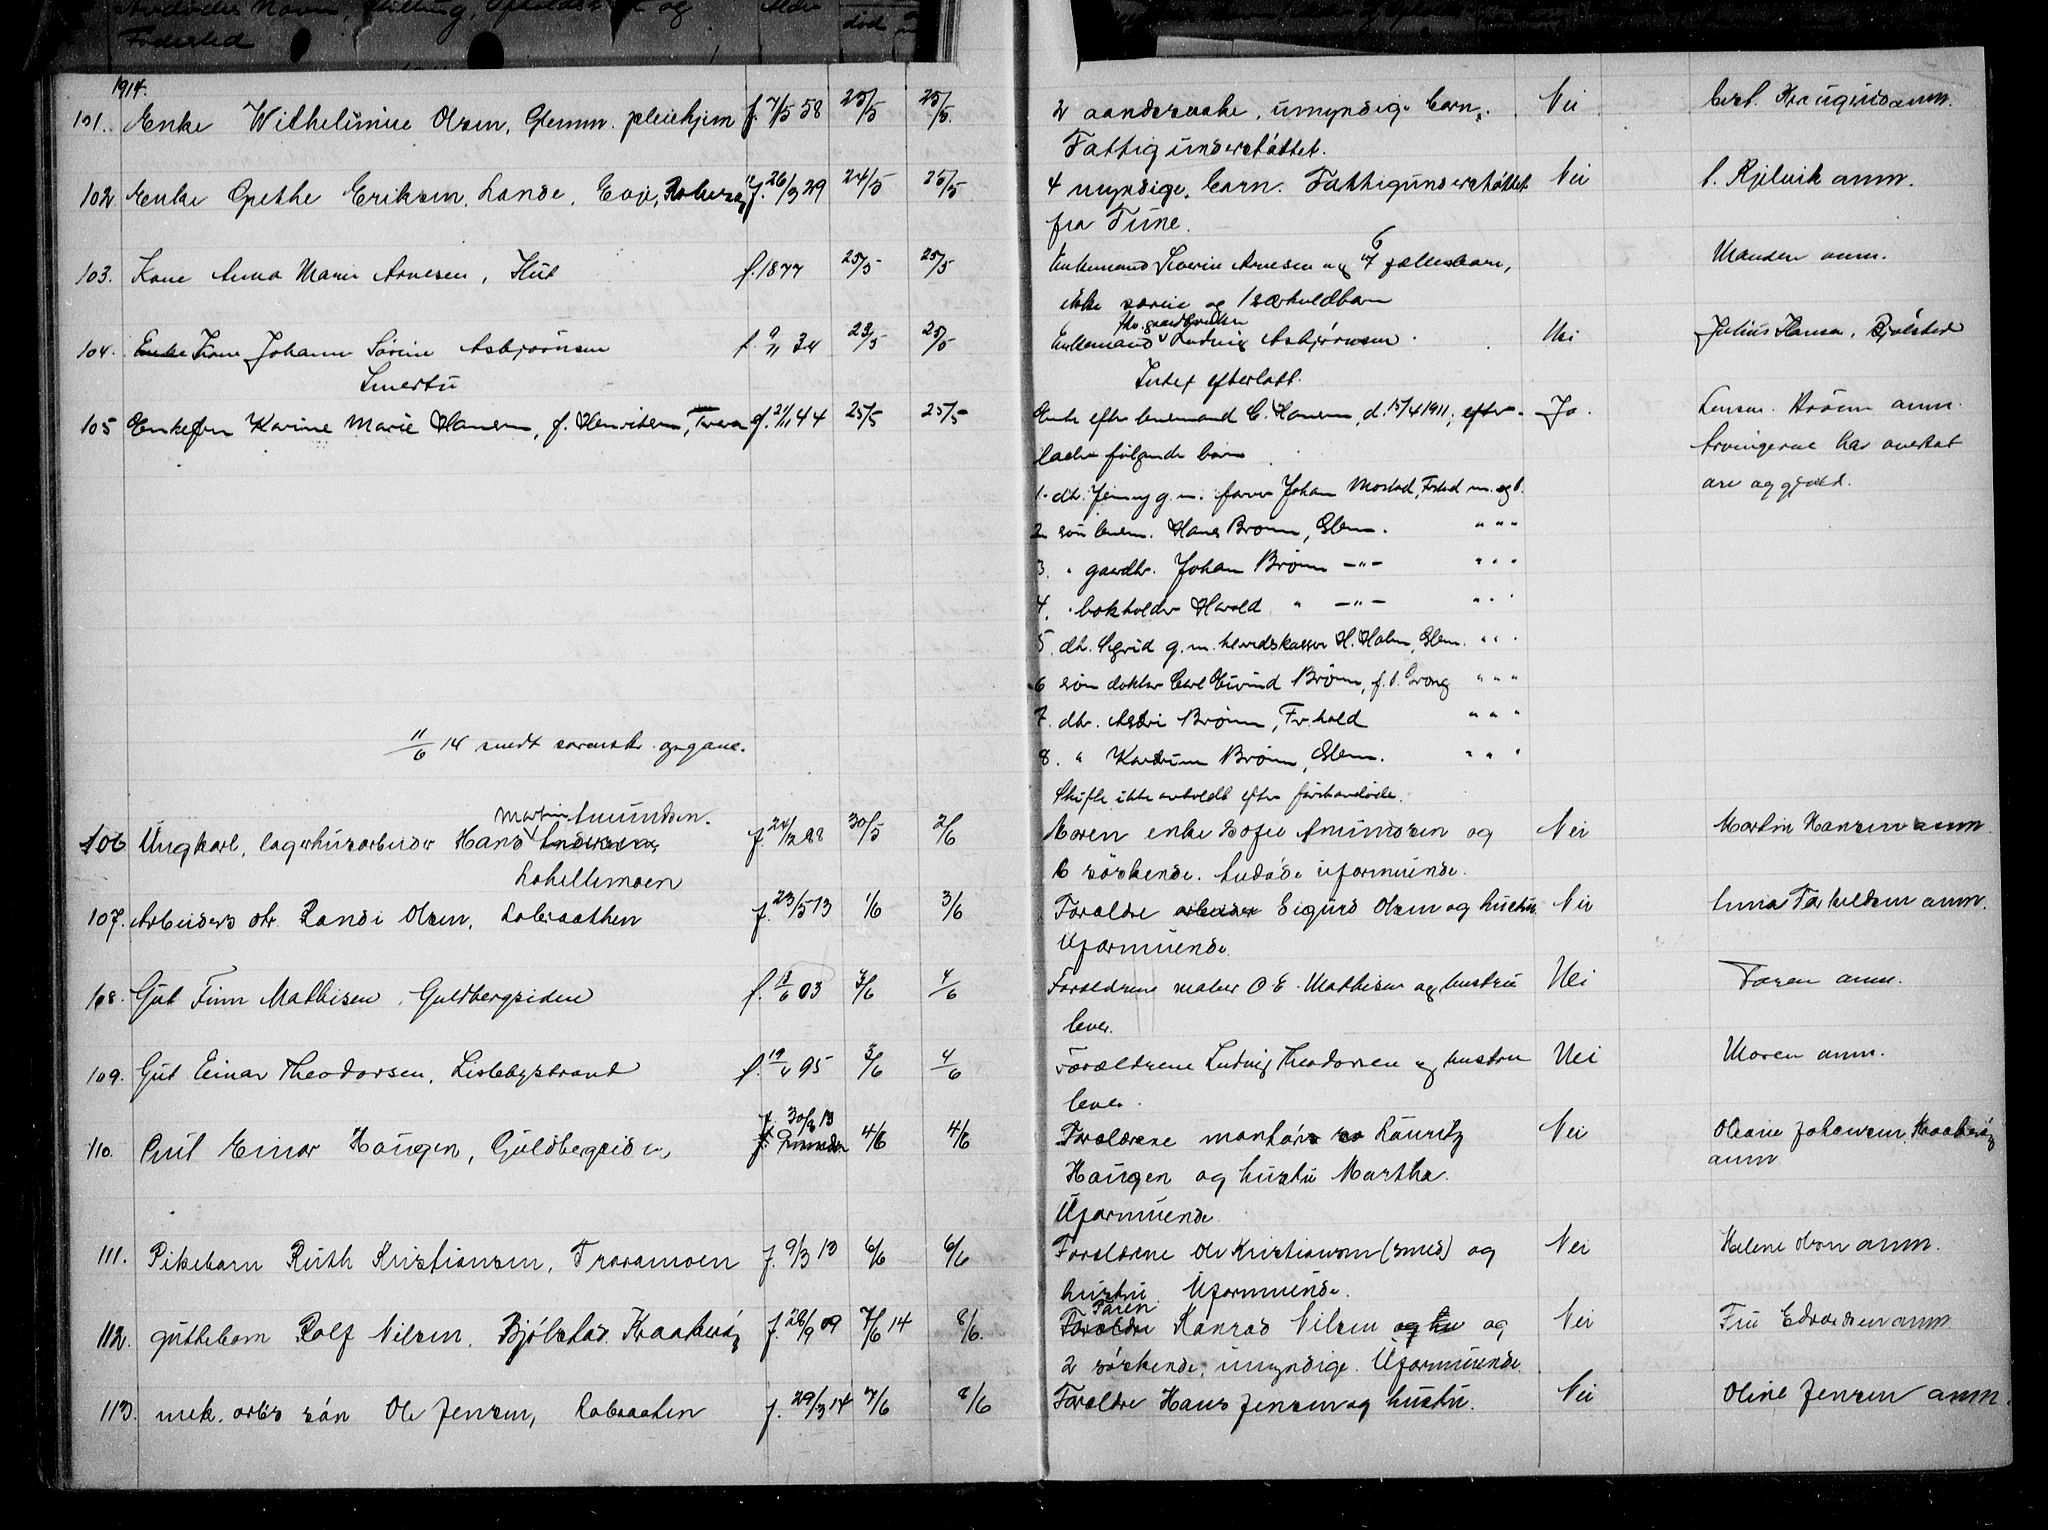 Avdødes Navn, Stilling, Opholdssted og Alder
Fødested død
1914.
101. Enke Wilhelmine Olsen, Glemm. pleiehjem f. 7/5 58 25/5 25/5. 2 aandssvake, umyndige barn. Nei anm.
Fattigunderstøttet.
102. Enke Grethe Eriksen, Lande, f. 26/3 29 24/5 25/5 4 myndige barn. Fattigunderstøttet Nei anm.
fra Tune.
103. Kone Anna Marie Arnesen, f. 1877 25/5 25/5 Enkemand Severin Arnesen og 6 fællesbarn, Manden anm.
ikke særeie og 1 særkuldbarn
fhv. gaardbruker
104. Enke Kone Johanne Sørine Asbjørnsen f. 9/11 34 23/5 25/5 Enkemand Ludvig Asbjørnsen. Nei Julius Hansen, Bjølstad
Smertu Intet efterlatt.
105 Enkefru Karine Marie Hansen, f. Henriksen, Trara f. 21/11 44 25/5 25/5 Enke efter lensmand C. Hansen, d. 15/4 1911, efter- Ja. Lensm. Brønn anm.
lader følgende barn Arvingerne har overtat
1. dtr. Jenny g. m. farver Johan Mostad, Frstad m. og b. arv og gjæld.
2 søn lensm. Hans Brønn, Glem. " " "
3. " gaardbr. Johan Brønn —"— " " "
4. " bokholder Harald " —"— " " "
5. dtr. Sigrid g. m. herredskasser H. Holm, Glem. " " "
6 søn doktor Carl Eivind Brønn, f. t. Grong " " "
7. dtr. Astri Brønn, Fr.hald " " "
11/6 14 sendt sorenskr. opgave. 8. " Kathrine Brønn, Glem. " " "
Skifte ikke avholdt efter førstavdøde.
Martin Amundsen.
106 Ungkarl, lagerhusarbeider Hans Andersen, f. 24/12 88 30/5 2/6 Moren enke Sofie Amundsen og Nei Martin Hansen anm.
Lahellemoen 6 søskende. Avdøde uformuende.
107. Arbeiders dtr. Randi Olsen, Labraathen f. 23/5 13 1/6 3/6 Forældre arbeider Sigurd Olsen og hustru Nei anm.
Uformuende.
108. Gut Finn Mathisen, Guldbergsiden f. 03 3/6 4/6 Forældrene maler O E. Mathisen og hustru Nei Faren anm.
lever.
109. Gut Einar Theodorsen, Lislebystrand f. 95 3/6 4/6 Forældrene Ludvig Theodorsen og hustru Nei Moren anm.
lever.
f. 30/8 13
110. Gut Einar Haugen, Guldbergsiden 4/6 4/6 Forældrene montør Lauritz Nei Oleane Johansen, Kraakerøy
Haugen og hustru Martha. anm.
Uformuende.
111. Pikebarn Ruth Kristiansen, Traramoen f. 9/3 13 6/6 6/6 Forældrene Ole Kristiansen (smed) og Nei Helene Olsen anm.
hustru. Uformuende.
Faren
112. guttebarn Rolf Nilsen, Bjølstad, Kraakerøy f. 28/9 09 7/6 14 8/6. Forældre Konrad Nilsen og hu og Nei Fru Edvardsen anm.
2 søskende, umyndige. Uformuende.
113. mek. arbs søn Ole Jensen, Labraaten f. 29/3 14 7/6 8/6 Forældre Hans Jensen og hustru. Nei Oline Jensen anm.